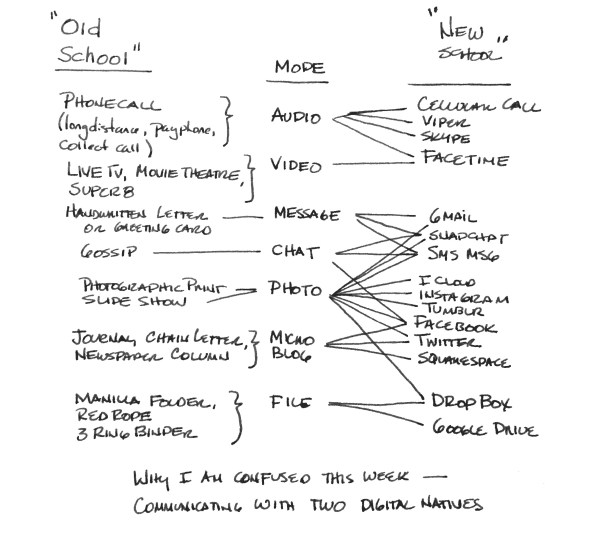 "Old
School"
MODE
"NEW
SCHOOL"
PHONECALL
(long distance, payphone,
collect call)
AUDIO
CELLULAR CALL
VIPER
SKYPE
FACETIME
LIVE TV, MOVIE THEATRE,
SUPER 8
VIDEO
HANDWRITTEN LETTER
OR GREETING CARD
MESSAGE
GMAIL
SNAPCHAT
SMS MSG
GOSSIP
CHAT
PHOTOGRAPHIC PRINT
SLIDE SHOW
PHOTO
ICLOUD
INSTAGRAM
TUMBLR
FACEBOOK
TWITTER
SQUARESPACE
JOURNAL, CHAIN LETTER,
NEWSPAPER COLUMN
MICRO
BLOG
MANILLA FOLDER,
RED ROPE
3 RING BINDER
FILE
DROPBOX
GOOGLE DRIVE
WHY I AM CONFUSED THIS WEEK —
COMMUNICATING WITH TWO DIGITAL NATIVES